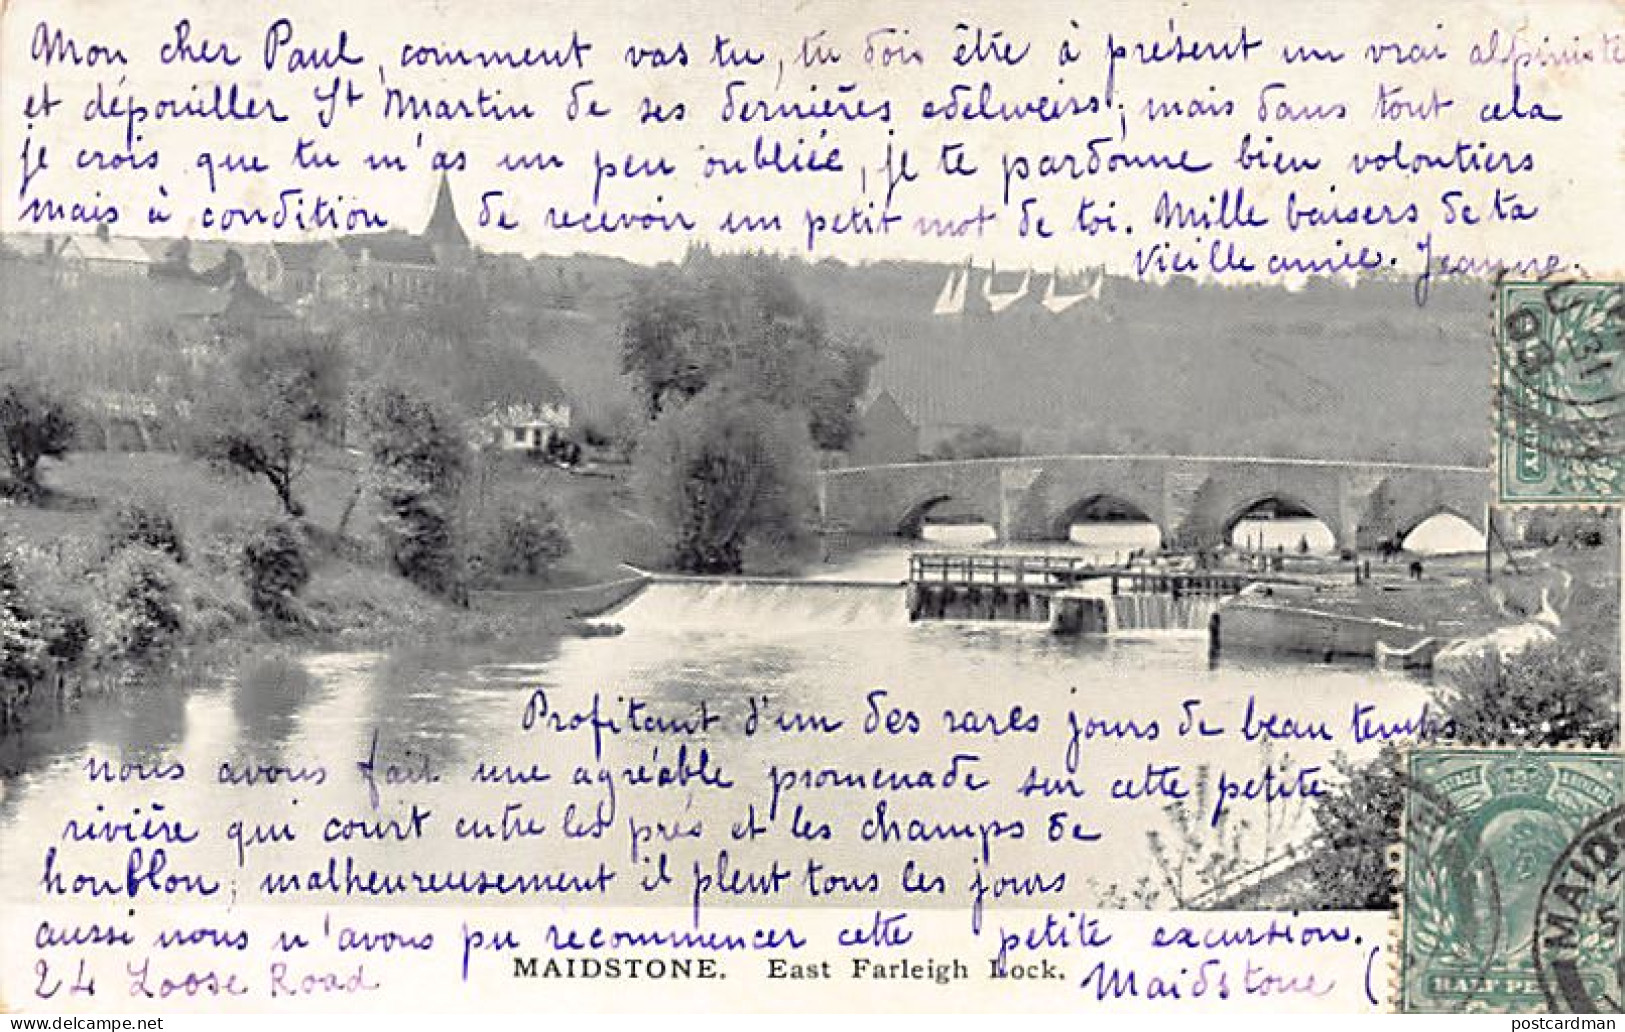 Mon cher Paul, comment vas tu, tu dois être à présent un vrai alpiniste
et dépouiller St Martin de ses dernières edelweiss; mais dans tout cela
je crois que tu m'as un peu oubliée, je te pardonne bien volontiers
mais à condition de recevoir un petit mot de toi. Mille baisers de ta
vieille amie. Jeanne.
Profitant d'un des rares jours de beau temps
nous avons fait une agréable promenade sur cette petite
rivière qui court entre les prés et les champs de
houblon, malheureusement il pleut tous les jours
aussi nous n'avons pu recommencer cette petite excursion.
24 Loose Road
MAIDSTONE. East Farleigh Lock.
Maidstone (
HALF PENNY
MAIDS
postcardman